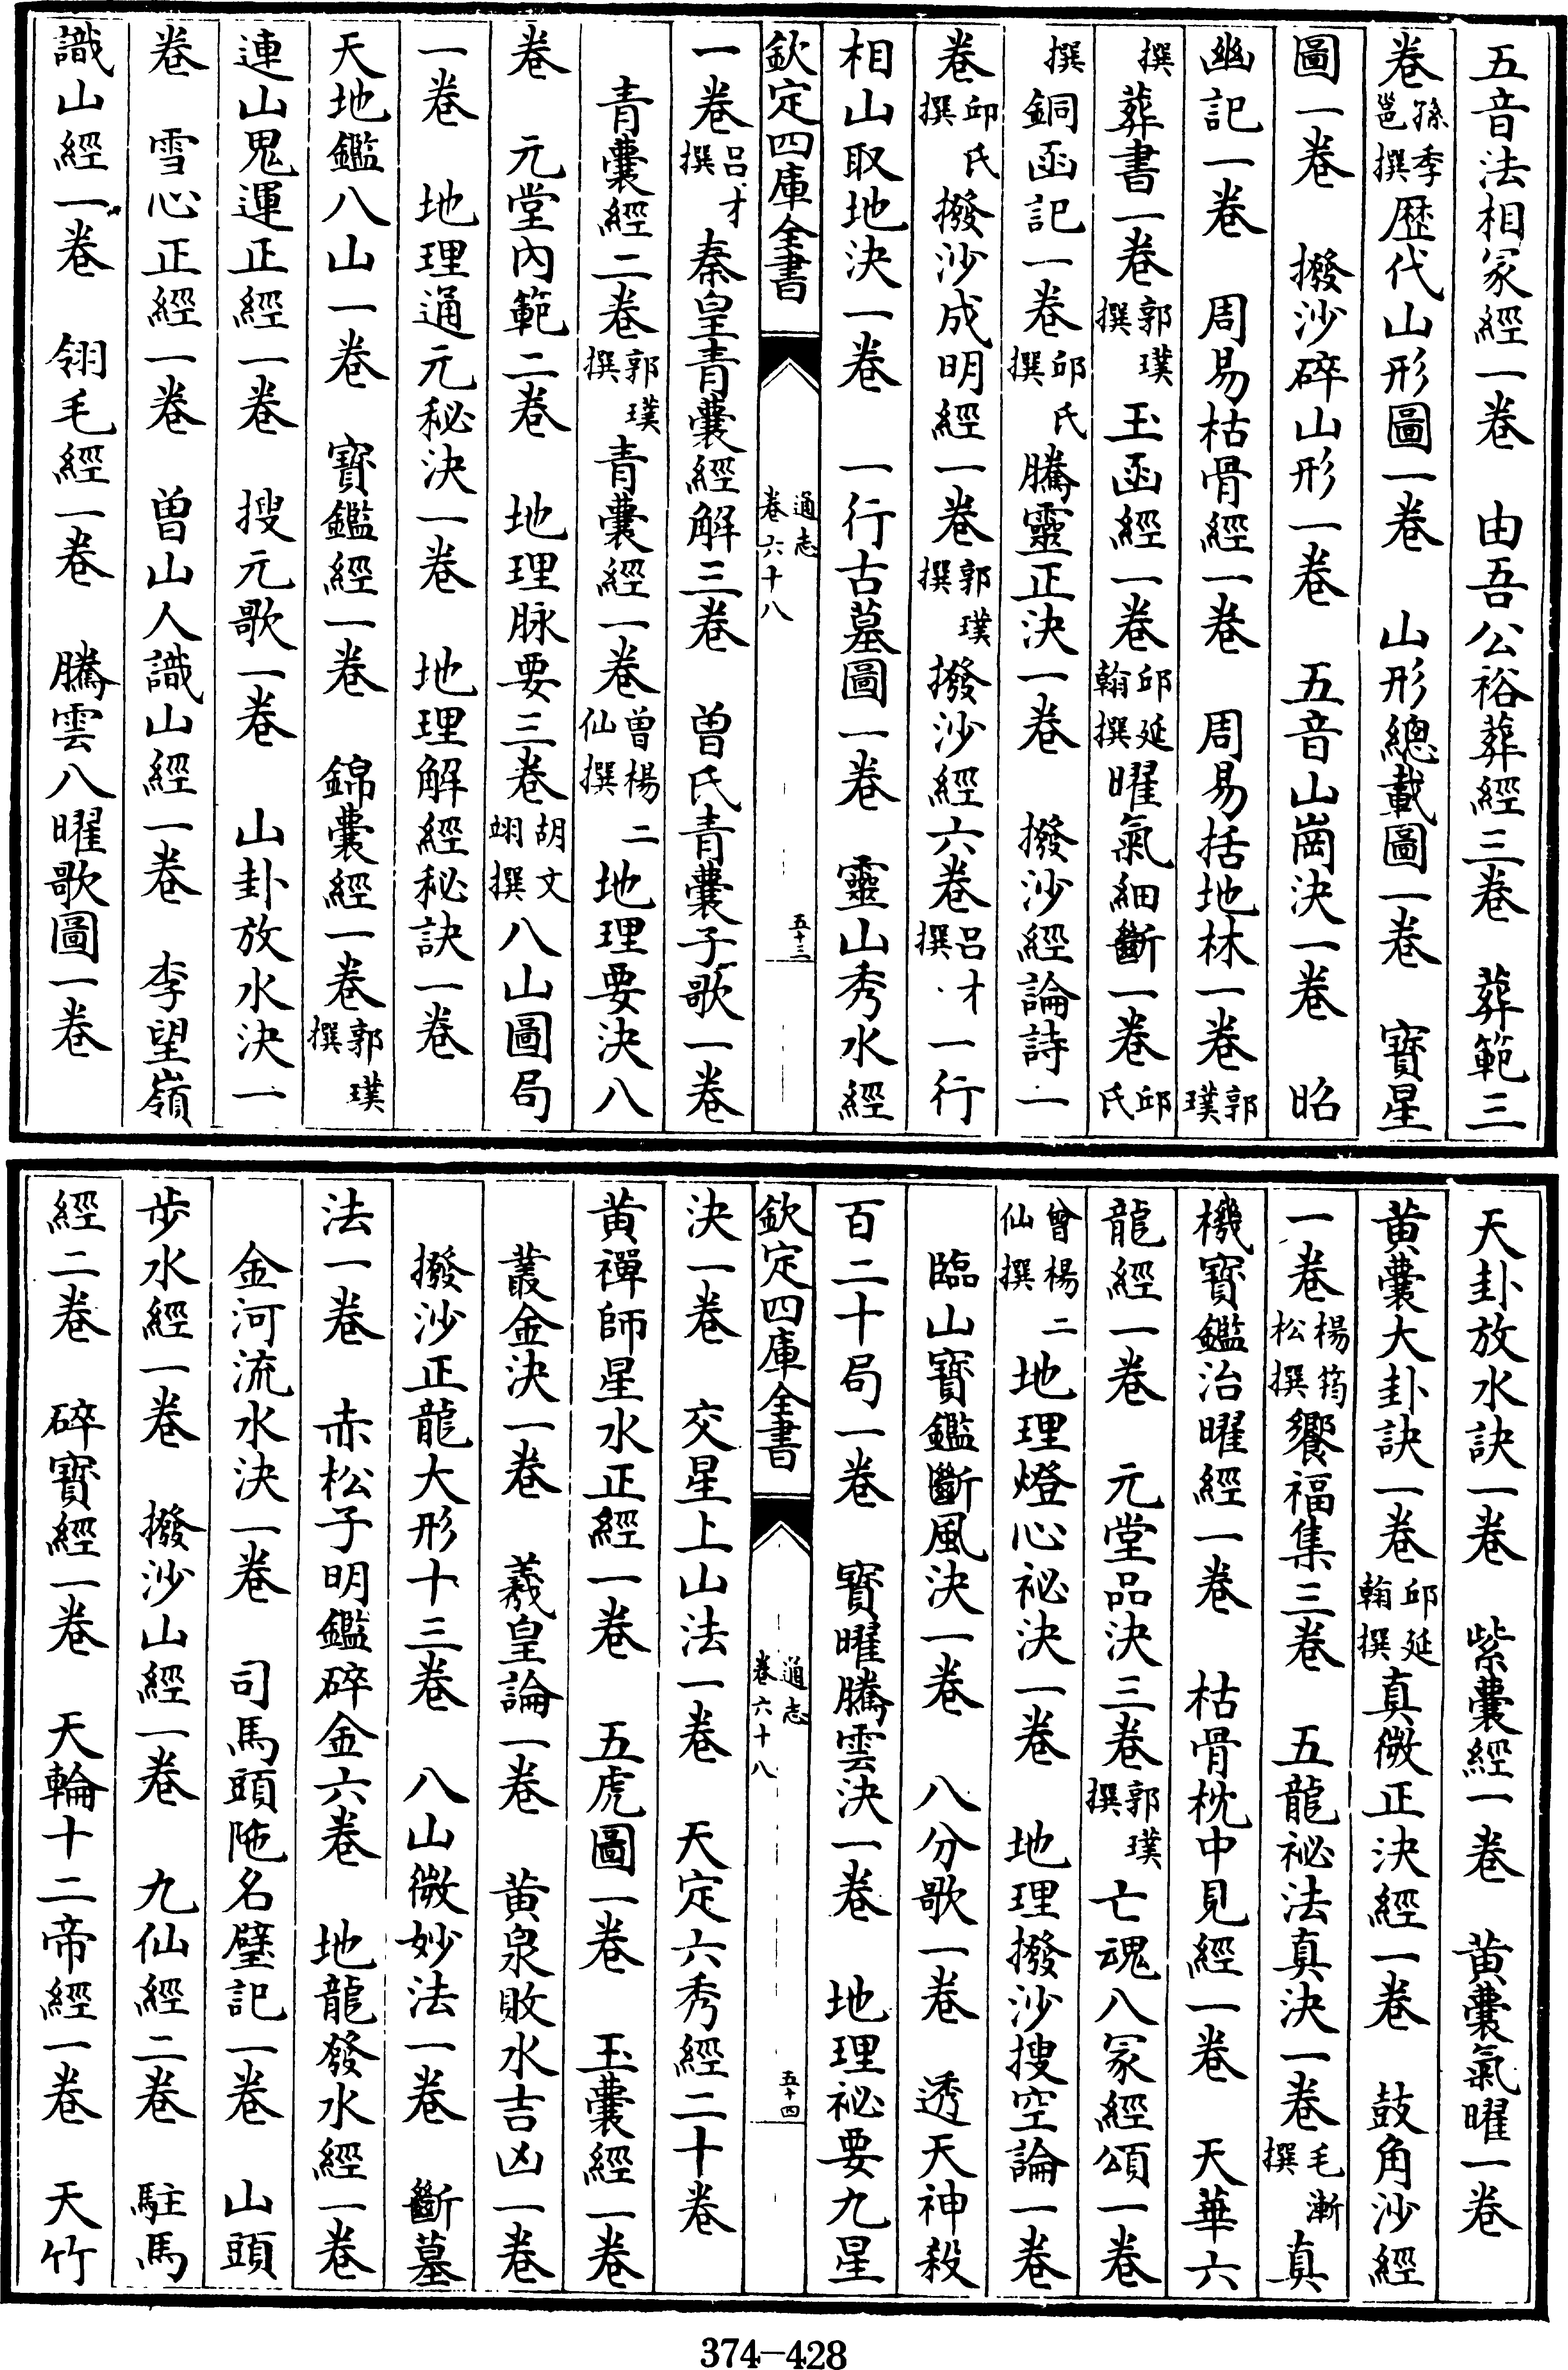 五音法相冡經一卷　由吾公裕葬經三卷　葬範三
卷孫季邕撰歴代山形圖一卷　山形總載圖一卷　寶星
圖一卷　撥沙碎山形一卷　五音山崗決一卷　昭
幽記一卷　周易枯骨經一卷　周易括地林一卷郭璞
撰葬書一卷郭璞撰玉函經一卷邱延翰撰曜氣細斷一卷邱氏
撰銅函記一卷邱氏撰騰靈正決一卷　撥沙經論詩一
卷邱氏撰撥沙成明經一卷郭璞撰撥沙經六卷吕才撰一行
相山取地決一卷　一行古墓圖一卷　靈山秀水經
欽定四庫全書　通志卷六十八　五十三
一卷吕才撰秦皇青囊經解三卷　曾氏青囊子歌一卷
青囊經二卷郭璞撰青囊經一卷曾楊二仙撰地理要決八
卷　元堂内範二卷　地理脉要三卷胡文翊撰八山圖局
一卷　地理通元秘決一卷　地理解經秘訣一卷
天地鑑八山一卷　寶鑑經一卷　錦囊經一卷郭璞撰
連山鬼運正經一卷　搜元歌一卷　山卦放水決一
卷　雪心正經一卷　曾山人識山經一卷　李望嶺
識山經一卷　翎毛經一卷　騰雲八曜歌圖一卷
天卦放水訣一卷　紫囊經一卷　黄囊氣曜一卷
黄囊大卦訣一卷邱延翰撰真微正決經一卷　鼓角沙經
一卷楊筠松撰饗福集三卷　五龍祕法真決一卷毛漸撰真
機寶鑑治曜經一卷　枯骨枕中見經一卷　天華六
龍經一卷　元堂品決三卷郭璞撰亡魂八冡經頌一卷
曾楊二仙撰地理燈心祕決一卷　地理撥沙搜空論一卷
臨山寶鑑斷風決一卷　八分歌一卷　透天神殺
百二十局一卷　寶曜騰雲決一卷　地理祕要九星
欽定四庫全書　通志卷六十八　五十四
決一卷　交星上山法一卷　天定六秀經二十卷
黄禪師星水正經一卷　五虎圖一卷　玉囊經一卷
叢金決一卷　羲皇論一卷　黄泉敗水吉凶一卷
撥沙正龍大形十三卷　八山微妙法一卷　斷墓
法一卷　赤松子明鑑碎金六卷　地龍發水經一卷
金河流水決一卷　司馬頭陁名壁記一卷　山頭
步水經一卷　撥沙山經一卷　九仙經二卷　駐馬
經二卷　碎寶經一卷　天輪十二帝經一卷　天竹
374-428